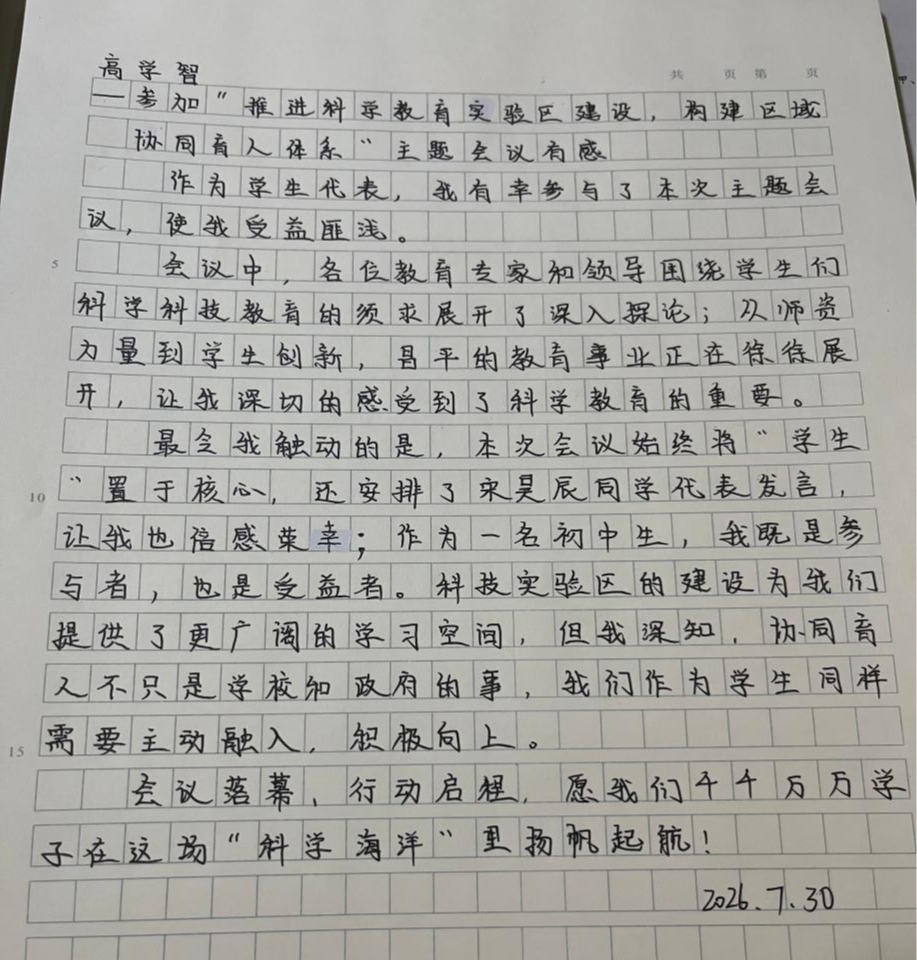 高学智
共 页 第 页
—参加“推进科学教育实验区建设，构建区域
协同育人体系”主题会议有感
作为学生代表，我有幸参与了本次主题会
议，使我受益匪浅。
5 会议中，各位教育专家和领导围绕学生们
科学科技教育的须求展开了深入探论；从师资
力量到学生创新，昌平的教育事业正在徐徐展
开，让我深切的感受到了科学教育的重要。
最令我触动的是，本次会议始终将“学生
10 ”置于核心，还安排了宋昊辰同学代表发言，
让我也倍感荣幸；作为一名初中生，我既是参
与者，也是受益者。科技实验区的建设为我们
提供了更广阔的学习空间，但我深知，协同育
人不只是学校和政府的事，我们作为学生同样
15 需要主动融入，积极向上。
会议落幕，行动启程，愿我们千千万万学
子在这场“科学海洋”里扬帆起航！
2026.7.30